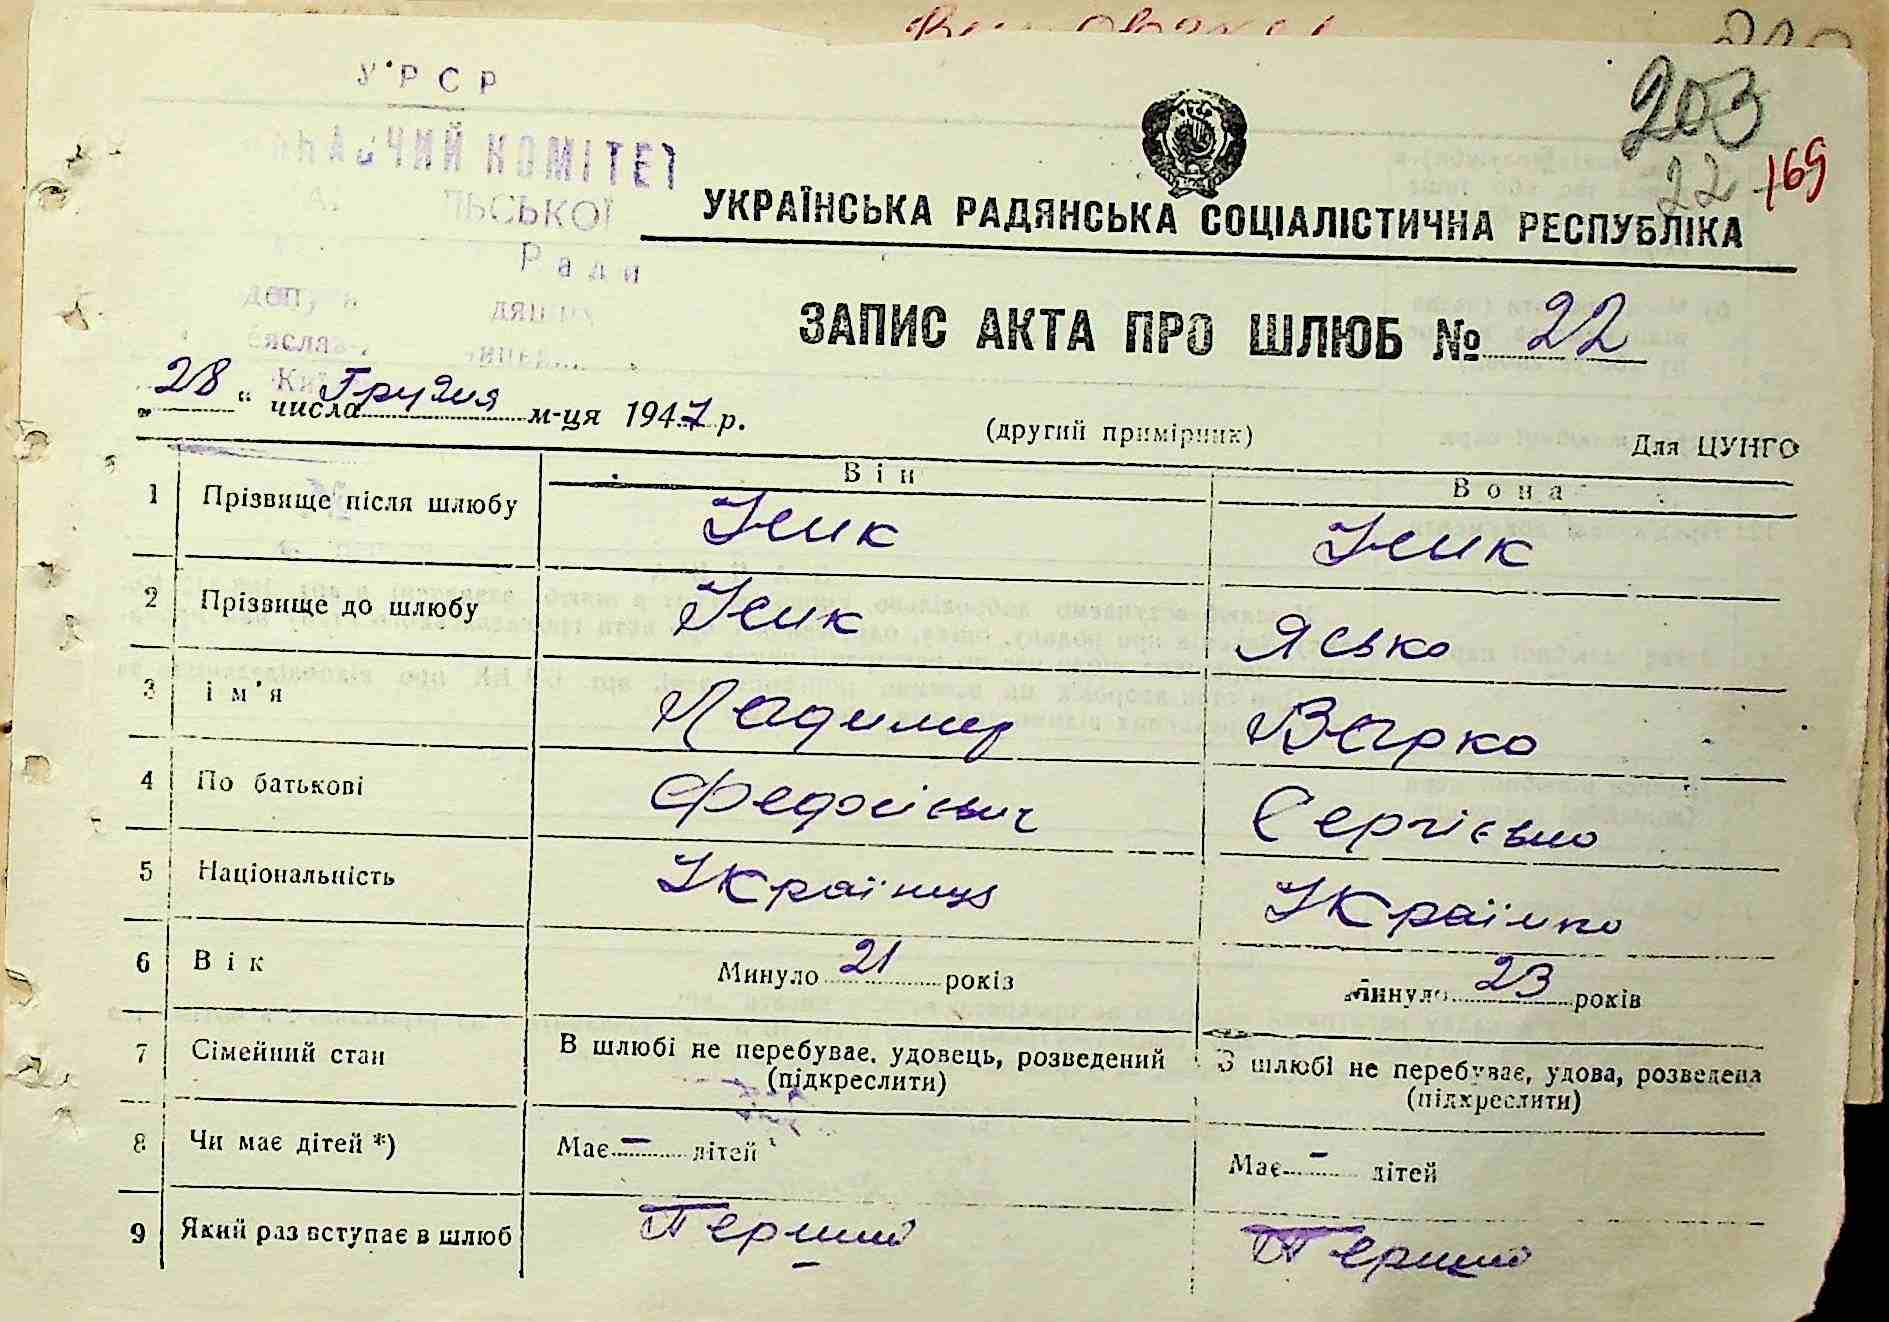 203
УРСР
КОМІТЕТ
22 165
ЛЬСЬКОЇ
УКРАЇНСЬКА РАДЯНСЬКА СОЦІАЛІСТИЧНА РЕСПУБЛІКА
Ради
ЗАПИС АКТА ПРО ШЛЮБ № 22
„28“ числа Грудня м-ця 1947 р.
(другий примірник)
Для ЦУНГО
Він Вона
1 Прізвище після шлюбу
2 Прізвище до шлюбу Ясько
3 ім'я Ладимер Варка
4 По батькові Федосієвич Сергієвна
5 Національність Українць Українка
6 Вік Минуло 21 років Минуло 23 років
7 Сімейний стан В шлюбі не перебуває, удовець, розведений (підкреслити) В шлюбі не перебуває, удова, розведена (підкреслити)
8 Чи має дітей *) Має – дітей Має – дітей
9 Який раз вступає в шлюб Перший Перший